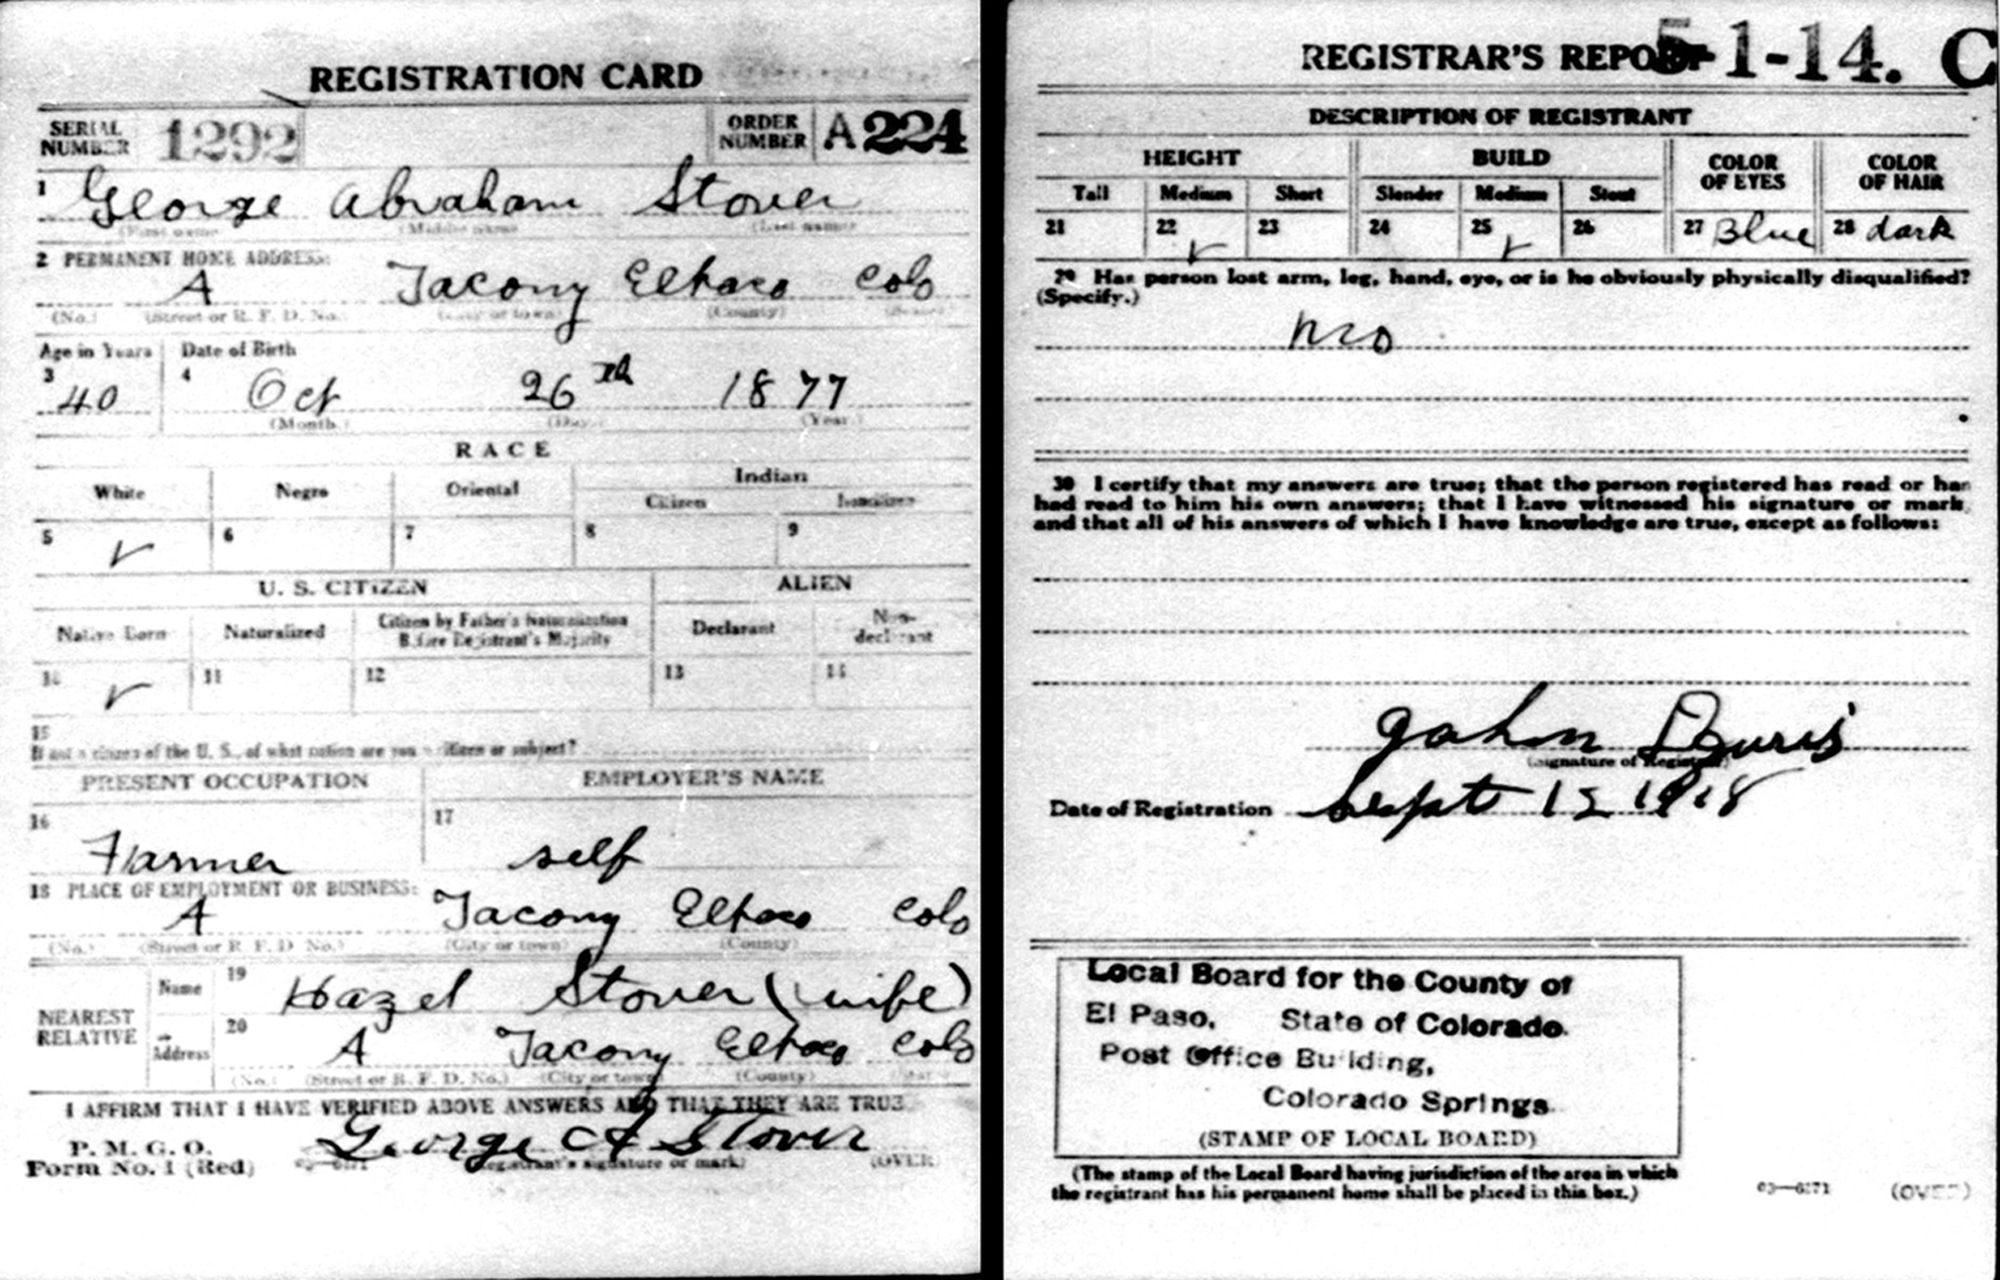 REGISTRATION CARD
SERIAL NUMBER 1292 ORDER NUMBER A 224
1 George Abraham Stover
(First name) (Middle name) (Last name)
2 PERMANENT HOME ADDRESS:
A Tacony Elpaso Colo
(No.) (Street or R. F. D. No.) (City or town) (County) (State)
Age in Years Date of Birth
3 40 4 Oct 26 1877
(Month.) (Day.) (Year.)
RACE
White Negro Oriental Indian
Citizen Noncitizen
5 ✓ 6 7 8 9
U. S. CITIZEN ALIEN
Native Born Naturalized Citizen by Father's Naturalization Before Registrant's Majority Declarant Non-declarant
10 ✓ 11 12 13 14
15
If not a citizen of the U. S., of what nation are you a citizen or subject?
PRESENT OCCUPATION EMPLOYER'S NAME
16 Farmer 17 self
18 PLACE OF EMPLOYMENT OR BUSINESS:
A Tacony Elpaso Colo
(No.) (Street or R. F. D. No.) (City or town) (County)
NEAREST RELATIVE Name 19 Hazel Stover (wife)
Address 20 A Tacony Elpaso Colo
(No.) (Street or R. F. D. No.) (City or town) (County) (State)
I AFFIRM THAT I HAVE VERIFIED ABOVE ANSWERS AND THAT THEY ARE TRUE
P. M. G. O.
Form No. 1 (Red) George A Stover
03—6171 (Registrant's signature or mark) (OVER)
REGISTRAR'S REPORT 5-1-14. C
DESCRIPTION OF REGISTRANT
HEIGHT BUILD COLOR OF EYES COLOR OF HAIR
Tall Medium Short Slender Medium Stout
21 22 ✓ 23 24 25 ✓ 26 27 Blue 28 dark
29 Has person lost arm, leg, hand, eye, or is he obviously physically disqualified?
(Specify.)
no
30 I certify that my answers are true; that the person registered has read or has
had read to him his own answers; that I have witnessed his signature or mark,
and that all of his answers of which I have knowledge are true, except as follows:
John
(Signature of Registrar)
Date of Registration Sept 12 1918
Local Board for the County of
El Paso, State of Colorado.
Post Office Building,
Colorado Springs.
(STAMP OF LOCAL BOARD)
(The stamp of the Local Board having jurisdiction of the area in which
the registrant has his permanent home shall be placed in this box.)
03—6171 (OVER)